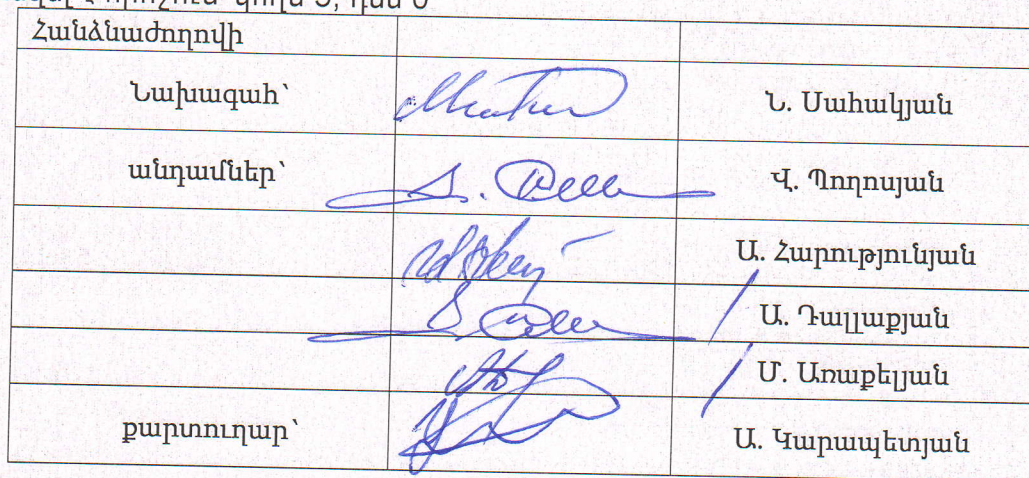 Հանձնաժողովի
Նախագահ՝ Ն. Սահակյան
անդամներ՝ Վ. Պողոսյան
Ա. Հարությունյան
Ա. Դալլաքյան
Մ. Առաքելյան
քարտուղար՝ Ա. Կարապետյան